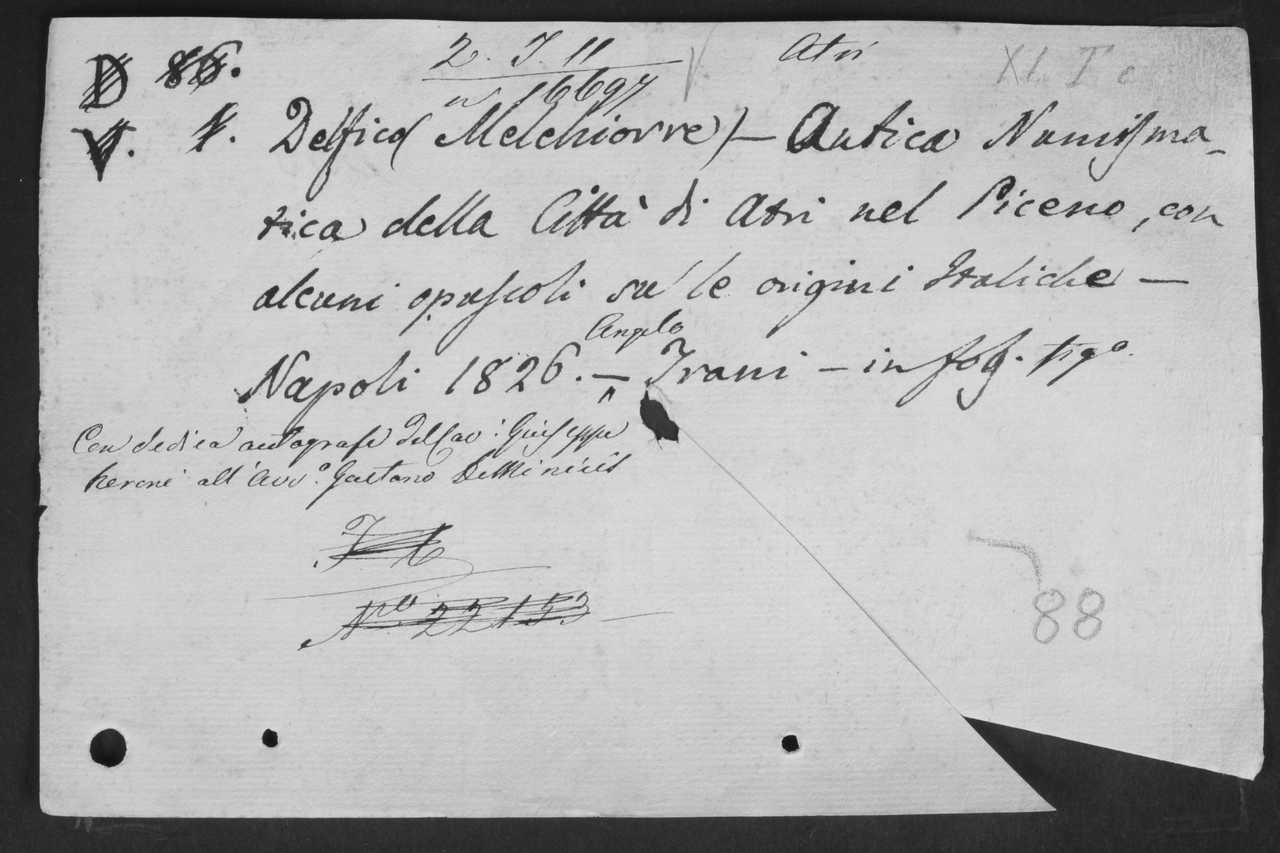 D 86.
2. I. 11
Atri
n° 16697
V. 1. Delfico (Melchiorre) – Antica Numisma-
tica della Città di Atri nel Piceno, con
alcuni opuscoli su le origini Italiche –
Angelo
Napoli 1826. – Trani – in fog. fig°.
Con dedica autografa del Cav: Giuseppe
all'Avv.° Gaetano DeMinicis
N.ro 22153
88